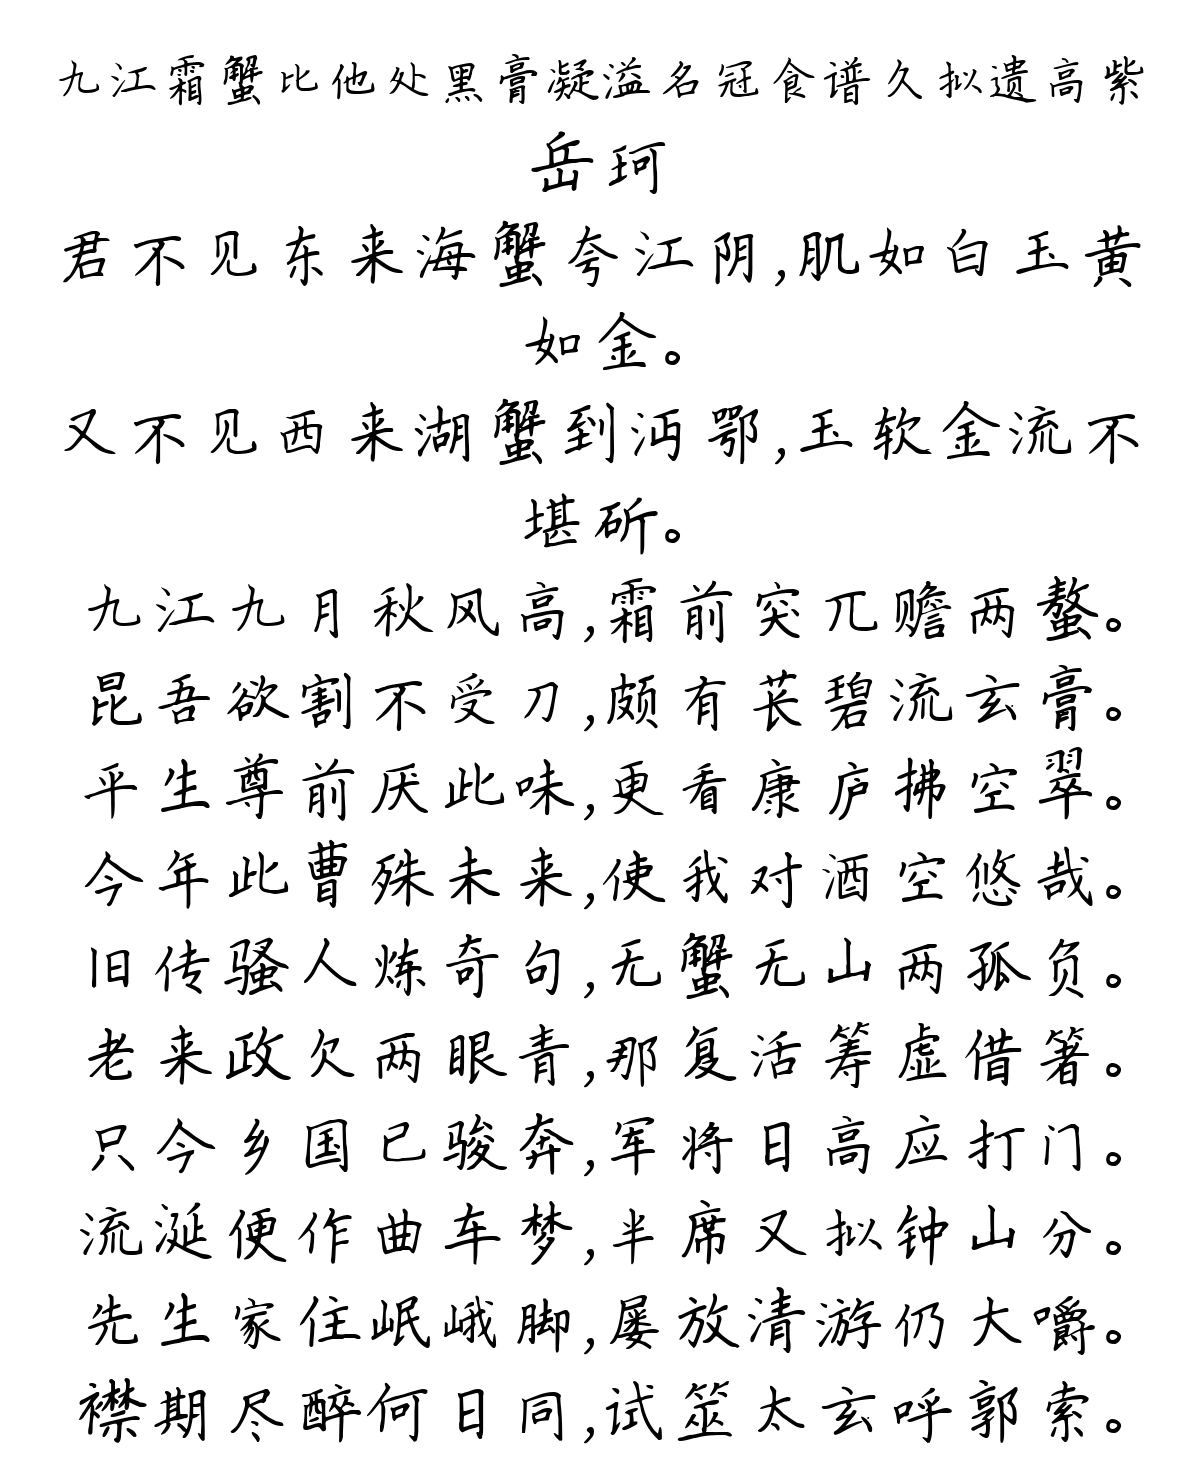 九江霜蟹比他处黑膏凝溢名冠食谱久拟遗高紫
岳珂
君不见东来海蟹夸江阴,肌如白玉黄
如金。
又不见西来湖蟹到沔鄂,玉软金流不
堪斫。
九江九月秋风高,霜前突兀赡两螯。
昆吾欲割不受刀,颇有苌碧流玄膏。
平生尊前厌此味,更看康庐拂空翠。
今年此曹殊未来,使我对酒空悠哉。
旧传骚人炼奇句,无蟹无山两孤负。
老来政欠两眼青,那复活筹虚借箸。
只今乡国已骏奔,军将日高应打门。
流涎便作曲车梦,半席又拟钟山分。
先生家住岷峨脚,屡放清游仍大嚼。
襟期尽醉何日同,试筮太玄呼郭索。